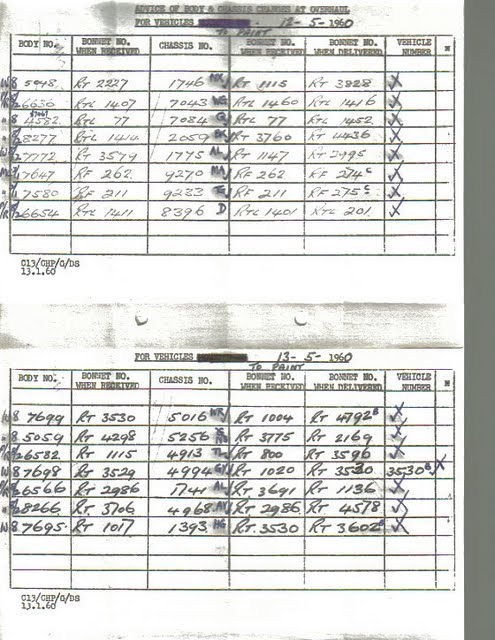 ADVICE OF BODY & CHASSIS CHANGES AT OVERHAUL
FOR VEHICLES 12-5-1960
TO PAINT
BODY NO. BONNET NO. WHEN RECEIVED CHASSIS NO. BONNET NO. TO PAINT BONNET NO. WHEN DELIVERED VEHICLE NUMBER
W8 5048 RT 2227 1746 MX RT 1115 RT 3828 X
26636 RTL 1407 7043 RTL 1460 RTL 1416 X
4582 RTL 77 7084 RTL 77 RTL 1452 X
8277 RTL 1414 2059 RT 3760 RT 4436 X
7772 RT 3579 1775 AL RT 1147 RT 2995 X
7647 RF 262 9270 MA RF 262 RF 274C X
7580 RF 211 9233 RF 211 RF 275C X
26654 RTL 1411 8396 D RTL 1401 RTL 201 X
C13/CHP/G/DS
13.1.60
FOR VEHICLES 13-5-1960
TO PAINT
BODY NO. BONNET NO. WHEN RECEIVED CHASSIS NO. BONNET NO. BONNET NO. WHEN DELIVERED VEHICLE NUMBER
W8 7699 RT 3530 5016 WR RT 1004 RT 4792B X
5059 RT 4298 5256 RT 3775 RT 2169 X
26532 RT 1115 4913 RT 800 RT 3596 X
W8 7698 RT 3529 4994 GY RT 1020 RT 3530 3530B X
26566 RT 2986 1741 AL RT 3691 RT 1136 X
8266 RT 3706 4968 AV RT 2986 RT 4578 X
W8 7695 RT 1017 1393 HG RT 3530 RT 3602B X
C13/CHP/G/DS
13.1.60